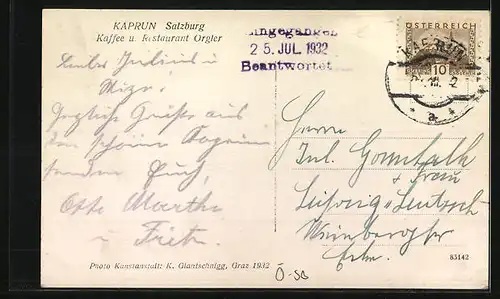 KAPRUN Salzburg
Kaffee u. Restaurant Orgler
Eingegangen
25. JUL. 1932
Beantwortet
ÖSTERREICH
10
a
Julius u.
Mizzi!
Herzliche Grüße aus
dem schönen Kaprun
senden Euch,
Otto Marthe
u. Fritz.
Herrn
Jul.
+ Frau
Leipzig-Leutzsch
Photo Kunstanstalt: K. Glantschnigg, Graz 1932
Ö-SG
83142